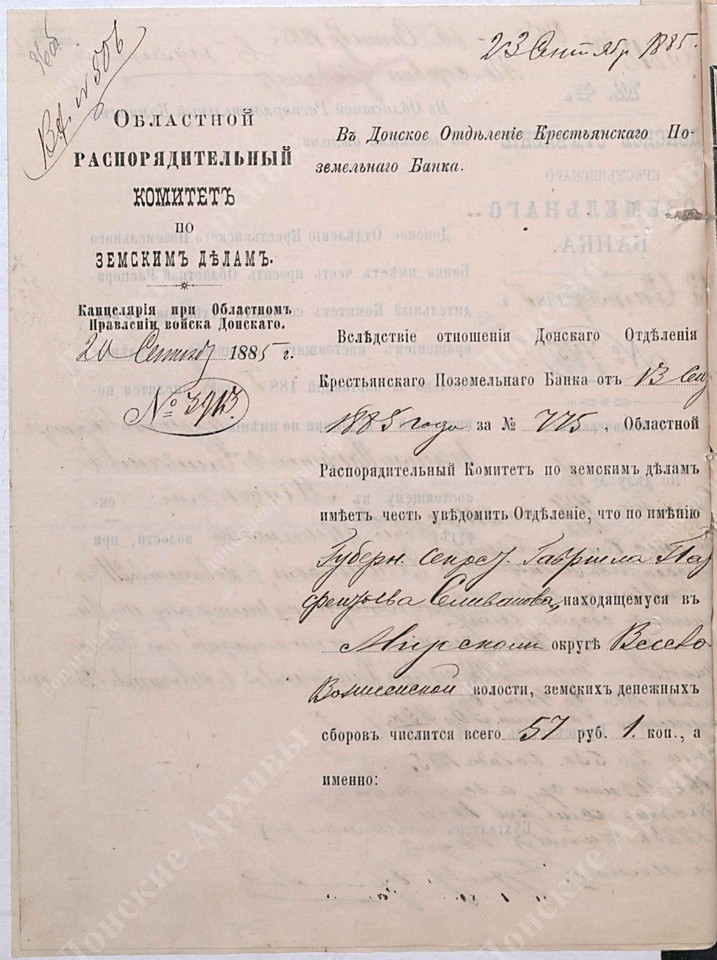 23 Сентябр 1885.
Вх. № 506
ОБЛАСТНОЙ
РАСПОРЯДИТЕЛЬНЫЙ
КОМИТЕТЪ
ПО
ЗЕМСКИМЪ ДѢЛАМЪ.
Канцелярія при Областномъ
Правленіи войска Донскаго.
20 Сентяб 1885 г.
№ 3943.
Въ Донское Отдѣленіе Крестьянскаго По-
земельнаго Банка.
Вслѣдствіе отношенія Донскаго Отдѣленія
Крестьянскаго Поземельнаго Банка отъ 13 Сен
1885 года за № 775, Областной
Распорядительный Комитетъ по земскимъ дѣламъ
имѣетъ честь увѣдомить Отдѣленіе, что по имѣнію
Губерн. Секрет. Гавріила Пар
фентьева Селиванова, находящемуся въ
округѣ
Вознесенской волости, земскихъ денежныхъ
сборовъ числится всего 57 руб. 1. коп., а
именно:
Донские Архивы